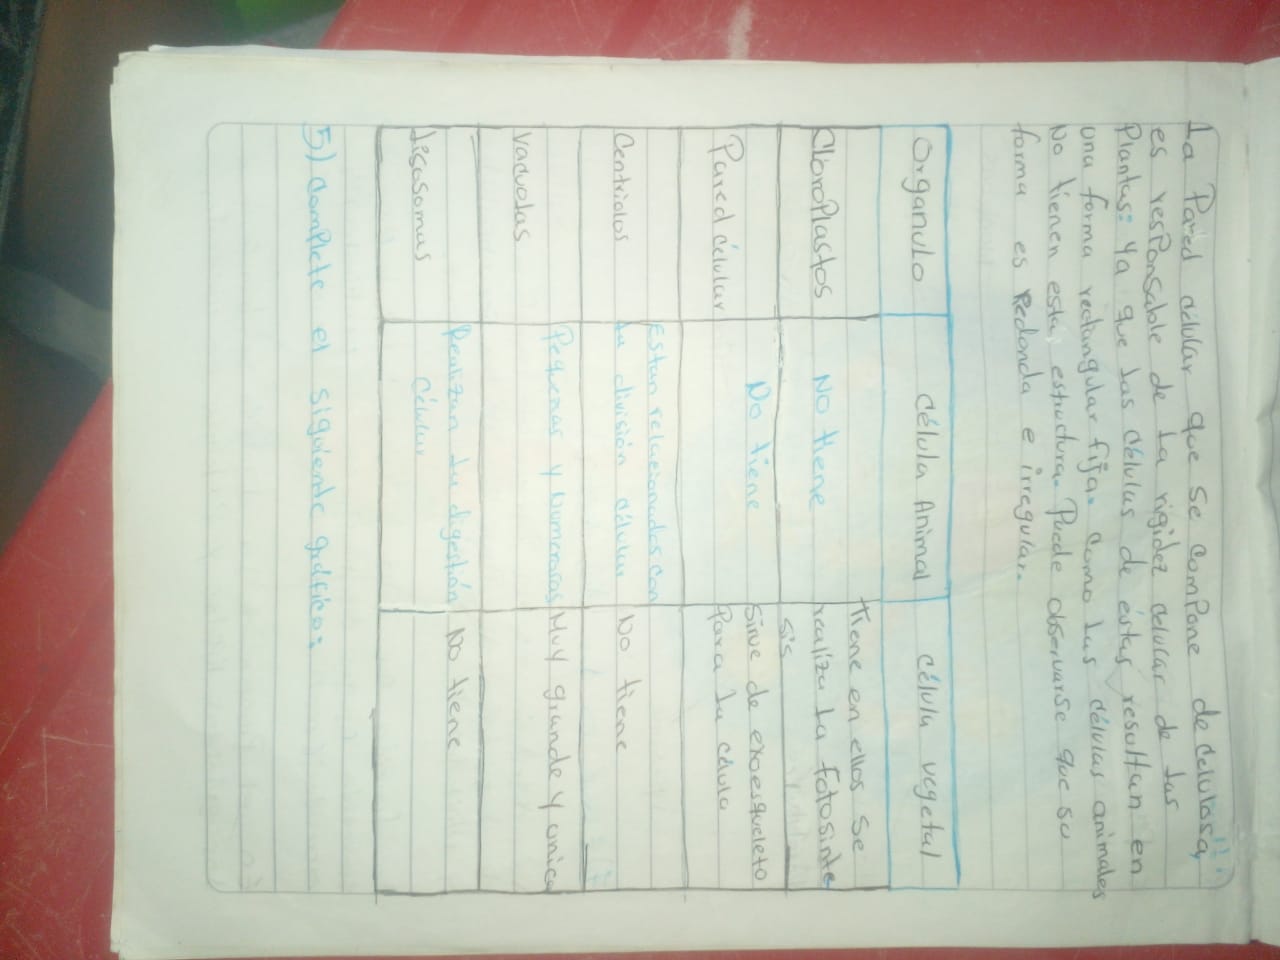 La Pared célular que se compone de celulosa,
es responsable de la rigidez celular de las
Plantas: Ya que las células de éstas resultan en
una forma rectangular fija. como las células animales
No tienen esta estructura. Puede observarse que su
forma es Redonda e irregular.
Organulo célula Animal célula vegetal
Cloroplastos No tiene tiene en ellos se
realiza la fotosinte
sis
Pared célular No tiene Sirve de exoesqueleto
para la célula
Centriolos Estan relacionados con
la división célular No tiene
vacuolas Pequeñas y Numerosas Muy grande y unica
lisosomas Realizan la digestión
Célular No tiene
5) complete el siguiente gráfico: